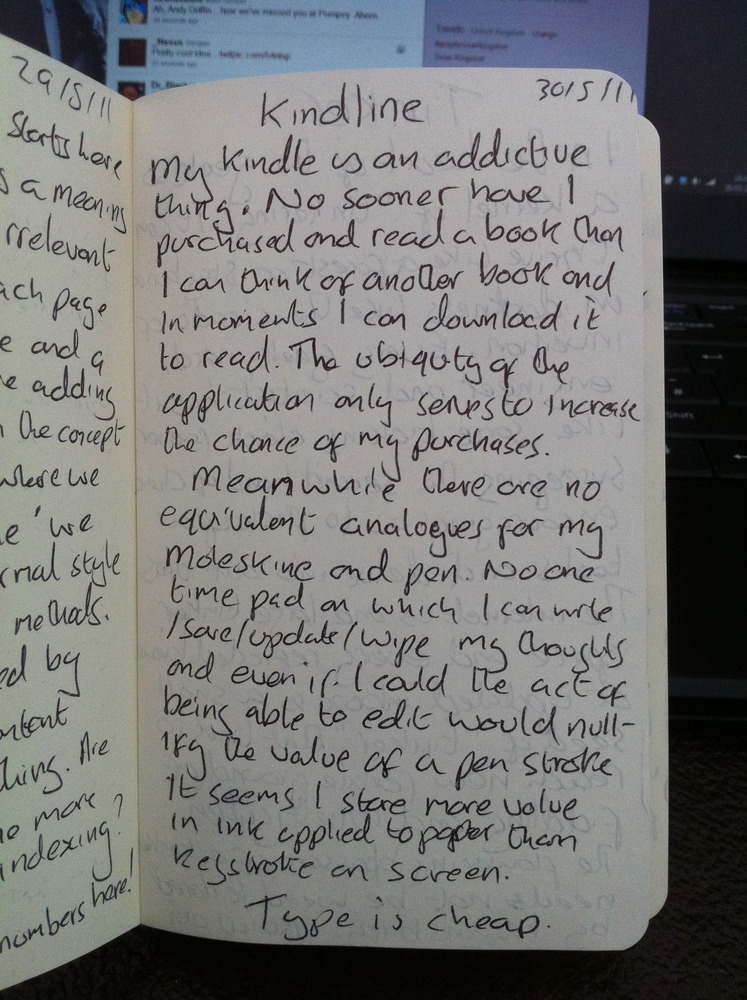 Ah, Andy Griffin... how we've missed you at Pompey. Ahem
29/5/11
Starts here
s a meaning
rrelevant
ach page
e and a
e adding
n the concept
where we
e 'we
rmal style
methods.
ed by
ntent
hing. Are
e more
indexing?
numbers here!
30/5/11
Kindline
My Kindle is an addictive
thing. No sooner have I
purchased and read a book than
I can think of another book and
in moments I can download it
to read. The ubiquity of the
application only serves to increase
the chance of my purchases.
Meanwhile there are no
equivalent analogues for my
Moleskine and pen. No one
time pad on which I can write
/save/update/wipe my thoughts
and even if I could the act of
being able to edit would null-
ify the value of a pen stroke
It seems I store more value
in ink applied to paper than
keystroke on screen.
Type is cheap.